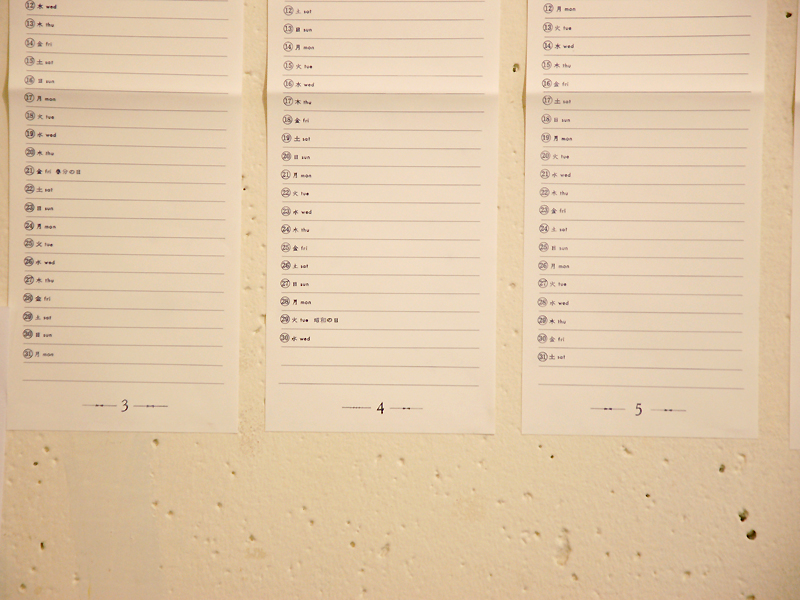 ⑫ 水 wed
⑬ 木 thu
⑭ 金 fri
⑮ 土 sat
⑯ 日 sun
⑰ 月 mon
⑱ 火 tue
⑲ 水 wed
⑳ 木 thu
㉑ 金 fri 春分の日
㉒ 土 sat
㉓ 日 sun
㉔ 月 mon
㉕ 火 tue
㉖ 水 wed
㉗ 木 thu
㉘ 金 fri
㉙ 土 sat
㉚ 日 sun
㉛ 月 mon
3
⑫ 土 sat
⑬ 日 sun
⑭ 月 mon
⑮ 火 tue
⑯ 水 wed
⑰ 木 thu
⑱ 金 fri
⑲ 土 sat
⑳ 日 sun
㉑ 月 mon
㉒ 火 tue
㉓ 水 wed
㉔ 木 thu
㉕ 金 fri
㉖ 土 sat
㉗ 日 sun
㉘ 月 mon
㉙ 火 tue 昭和の日
㉚ 水 wed
4
⑫ 月 mon
⑬ 火 tue
⑭ 水 wed
⑮ 木 thu
⑯ 金 fri
⑰ 土 sat
⑱ 日 sun
⑲ 月 mon
⑳ 火 tue
㉑ 水 wed
㉒ 木 thu
㉓ 金 fri
㉔ 土 sat
㉕ 日 sun
㉖ 月 mon
㉗ 火 tue
㉘ 水 wed
㉙ 木 thu
㉚ 金 fri
㉛ 土 sat
5